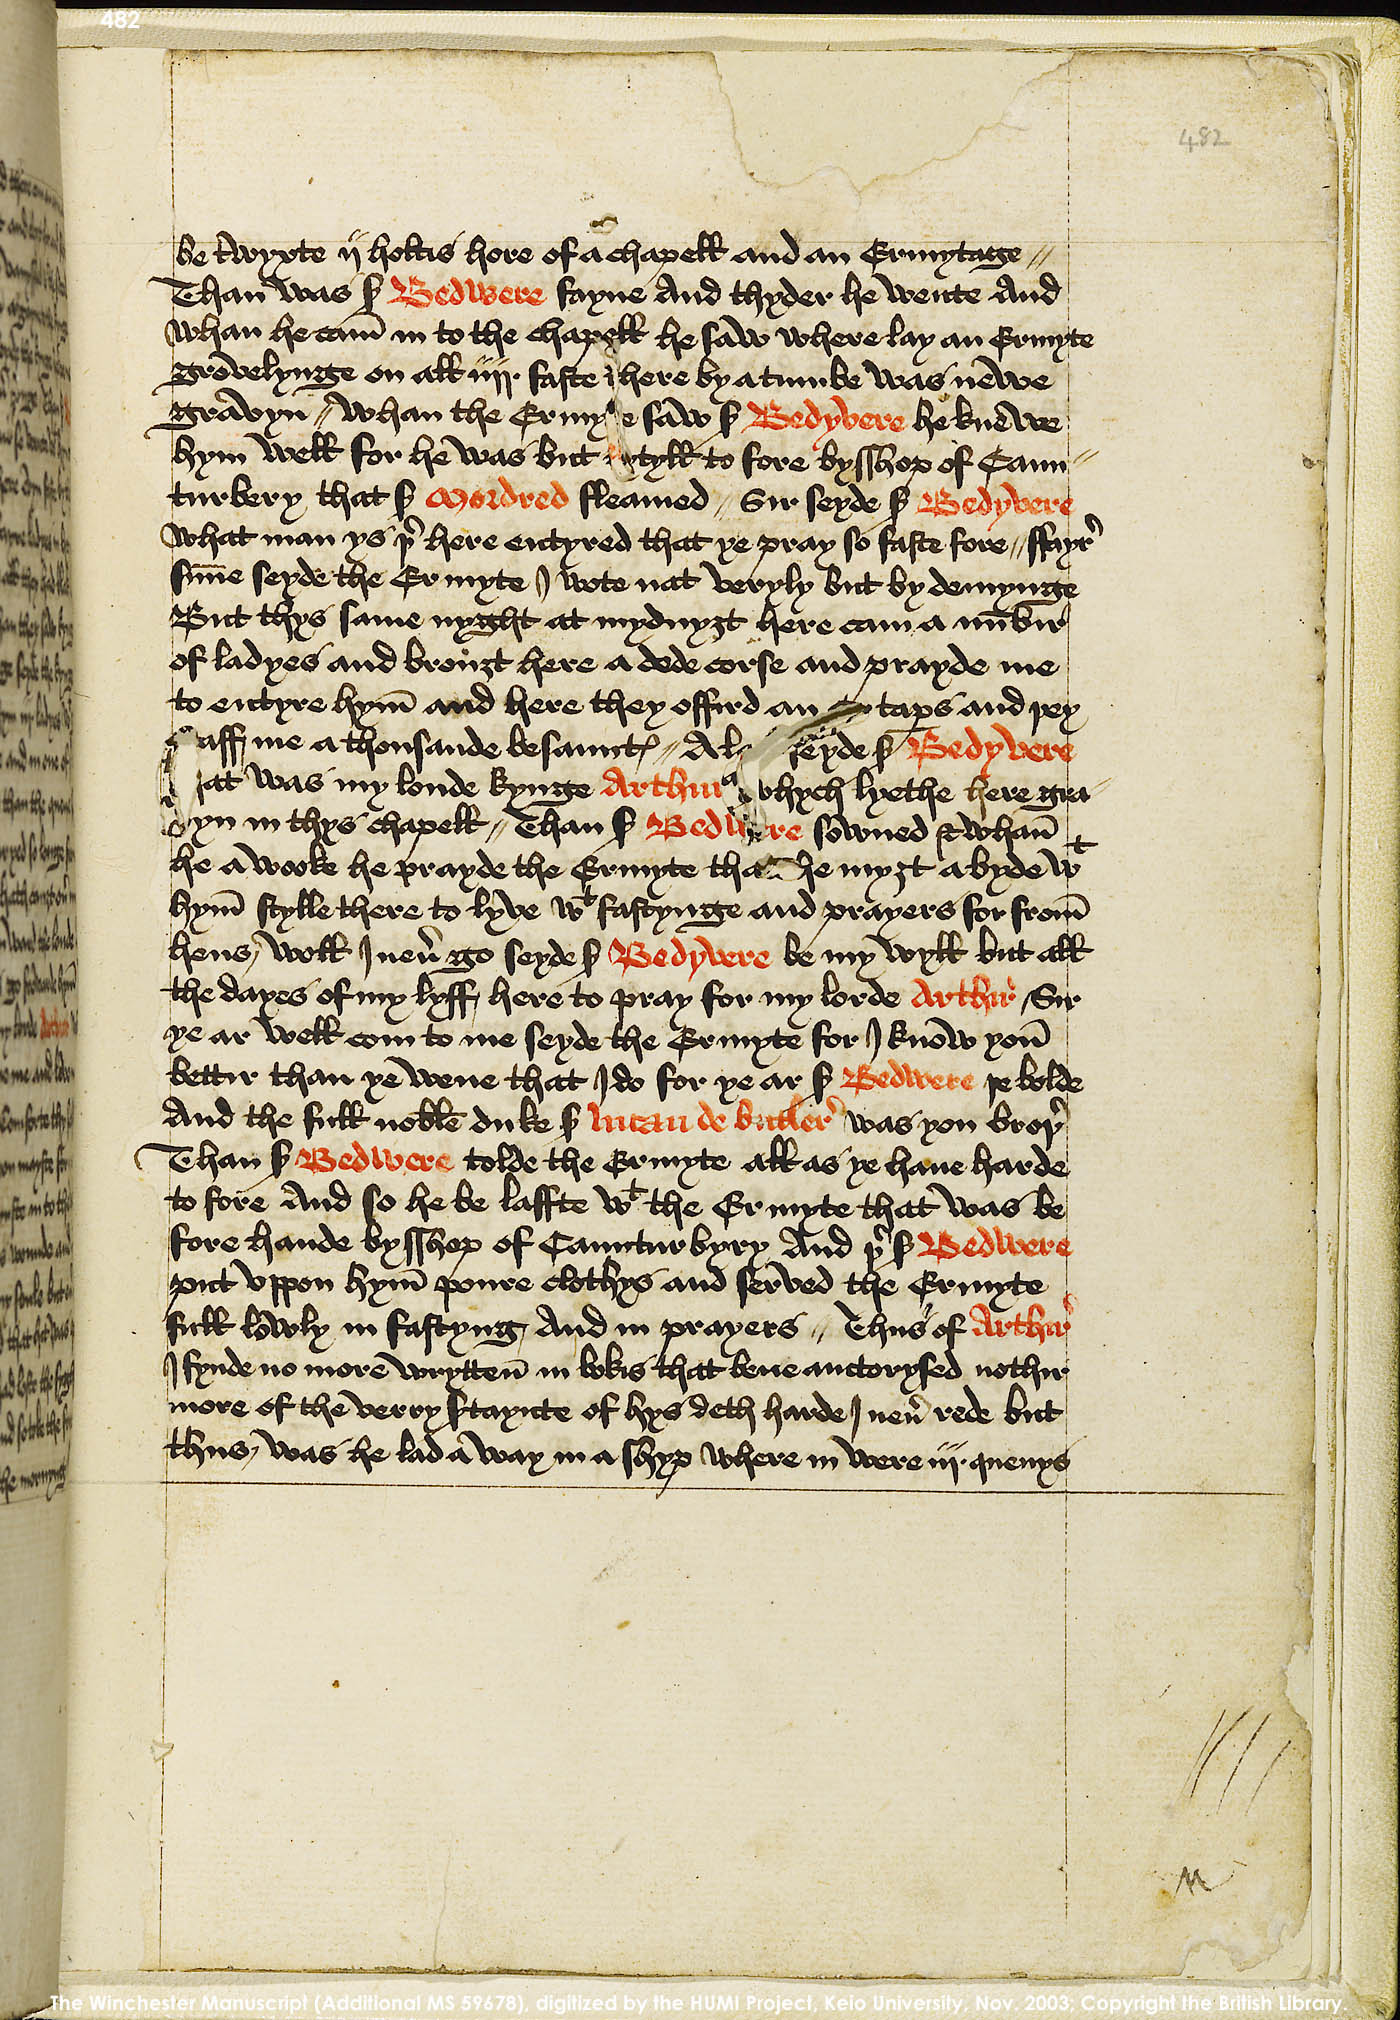 482
482
be twyxte ij holtis hore of a chapell and an Ermytage //
Than was s Bedwere fayne And thyder he wente And
whan he cam̄ in to the chapell he saw where lay an Ermyte
grovelynge on all iiij. faste there by a tumbe was newe
gravyn // whan the Ermyte saw s Bedyvere he knewe
hym well for he was but lytyll to fore bysshop of Caun-
turbery that s Mordred fleamed // Sir seyde s Bedyvere
what man ys þ̉ here entyred that ye pray so faste fore // ffayr̉
sun̄e seyde the Ermyte I wote nat veryly but by demynge
But thys same nyght at mydnyȝt here cam a nūbir
of ladyes and brouȝt here a dede corse and prayde me
to entyre hym̄ and here they offird an taps and þey
gaff me a thousande besauntꝭ // Al seyde s Bedyvere
þat was my lorde kynge Arthur whych lyethe here gra-
vyn in thys chapell // Than s Bedwere sowned & whan̄
he awooke he prayde the Ermyte that he myȝt abyde wᵗ
hym̄ stylle there to lyve wᵗ fastynge and prayers for from̄
hens / woll I nev̉ go seyde s Bedyvere be my wyll but all
the dayes of my lyff / here to pray for my lorde Arthur̉ / Sir
ye ar well com to me seyde the Ermyte for I know you̅
bettir than ye wene that I do for ye ar s Bedwere þe bolde
And the full noble duke s lucan de butler̉ was you broþ̉
Than s Bedwere tolde the Ermyte all as ye haue harde
to fore And so he be laffte wᵗ the Ermyte that was be
fore hande bysshop of Caunturbyry And þ̉ s Bedwere
put vppon hym̄ poure clothys and served the Ermyte
full lowly in fastyng / And in prayers // Thus of Arthur̉
I fynde no more wrytten̄ in bokis that bene auctorysed nothir
more of the verry s taynte of hys deth harde I nev̉ rede but
thus / was he lad a way in a shyp where in were iij. quenys
The Winchester Manuscript (Additional MS 59678), digitized by the HUMI Project, Keio University, Nov. 2003; Copyright the British Library.